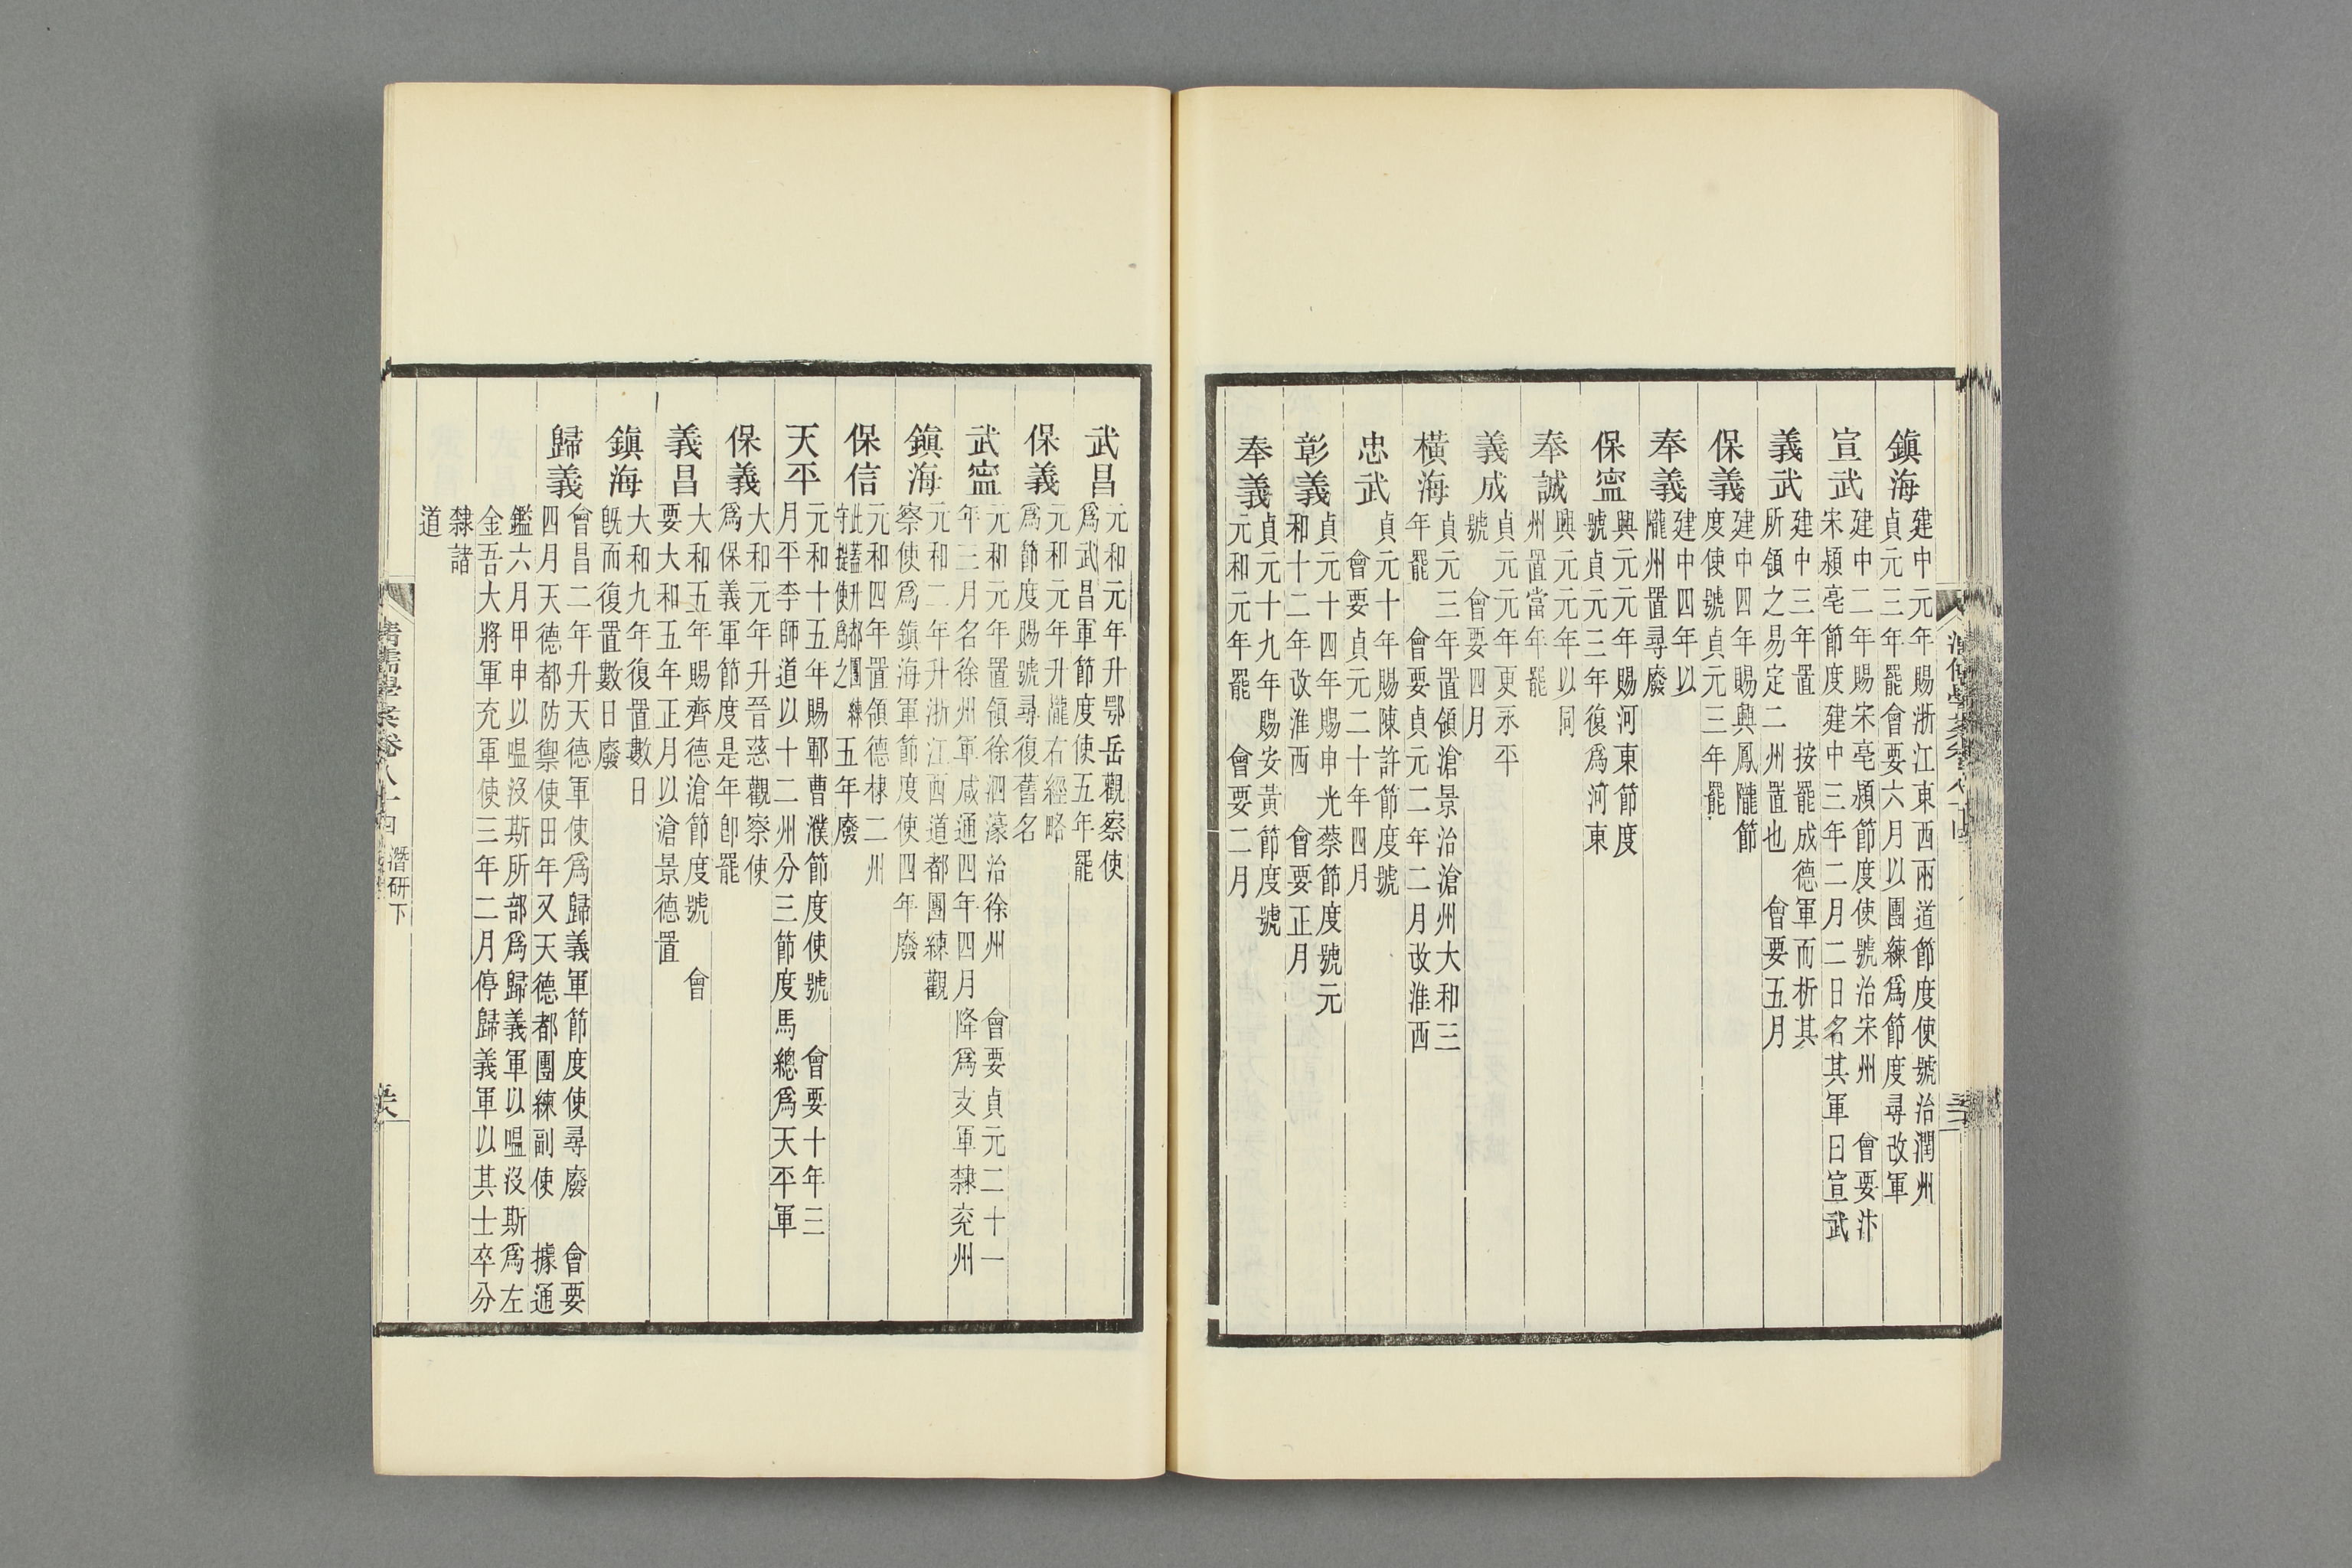 鎮海
建中元年賜浙江東西兩道節度使號治潤州
貞元三年罷會要六月以團練爲節度尋改軍
宣武
建中二年賜宋亳潁節度使號治宋州 會要汴
宋潁亳節度建中三年二月二日名其軍曰宣武
義武
建中三年置 按罷成德軍而析其
所領之易定二州置也 會要五月
保義
建中四年賜興鳳隴節
度使號貞元三年罷
奉義
建中四年以
隴州置尋廢
保寍
興元元年賜河東節度
號貞元三年復爲河東
奉誠
興元元年以同
州置當年罷
義成
貞元元年更永平
號 會要四月
橫海
貞元三年置領滄景治滄州大和三
年罷 會要貞元二年二月改淮西
忠武
貞元十年賜陳許節度號
會要貞元二十年四月
彰義
貞元十四年賜申光蔡節度號元
和十二年改淮西 會要正月
奉義
貞元十九年賜安黃節度號
元和元年罷 會要二月
武昌
元和元年升鄂岳觀察使
爲武昌軍節度使五年罷
保義
元和元年升隴右經略
爲節度賜號尋復舊名
武寍
元和元年置領徐泗濠治徐州 會要貞元二十一
年三月名徐州軍咸通四年四月降爲支軍隸兖州
鎮海
元和二年升浙江西道都團練觀
察使爲鎮海軍節度使四年廢
保信
元和四年置領德棣二州
此蓋升都團練
守捉使爲之 五年廢
天平
元和十五年賜鄆曹濮節度使號 會要十年三
月平李師道以十二州分三節度馬總爲天平軍
保義
大和元年升晉慈觀察使
爲保義軍節度是年卽罷
義昌
大和五年賜齊德滄節度號 會
要大和五年正月以滄景德置
鎮海
大和九年復置數日
旣而復置數日廢
歸義
會昌二年升天德軍使爲歸義軍節度使尋廢 會要
四月天德都防禦使田年又天德都團練副使 據通
鑑六月甲申以嗢沒斯所部爲歸義軍以嗢沒斯爲左
金吾大將軍充軍使三年二月停歸義軍以其士卒分
隸諸
道
諸儒學案卷八十四 潛研下